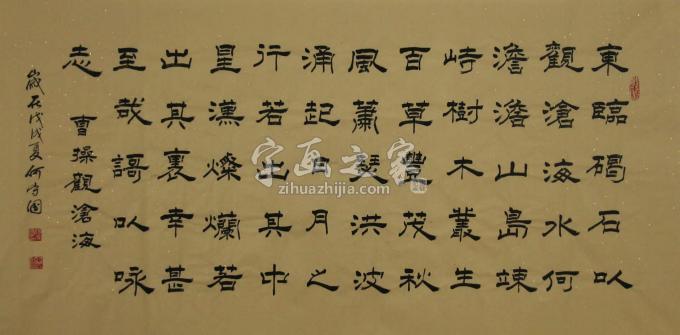 東臨碣石以
觀滄海水何
澹澹山島竦
峙樹木叢生
百草豐茂秋
風蕭瑟洪波
涌起日月之
行若出其中
星漢燦爛若
出其裏幸甚
至哉謌以咏
志 曹操觀滄海
歲在戊戌夏何守国
字画之家
zihuazhijia.com